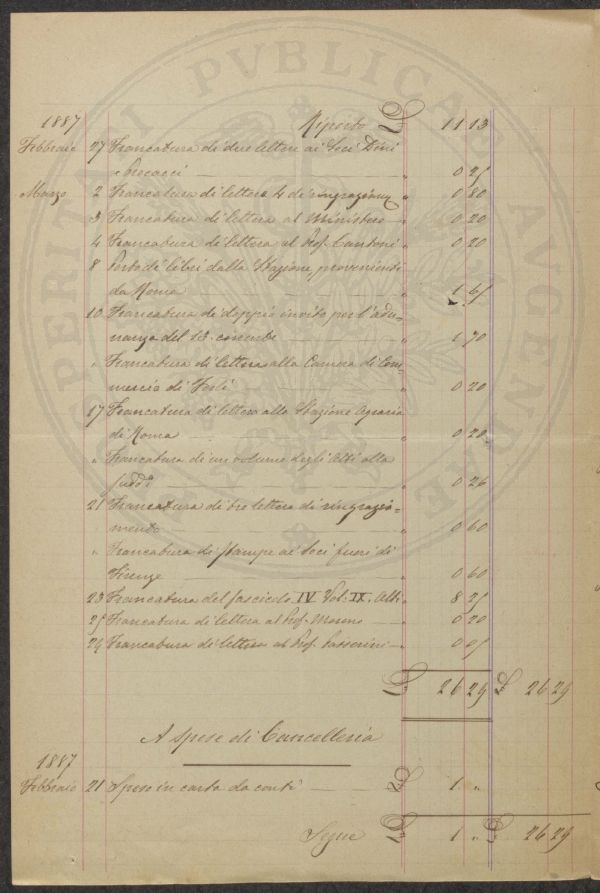 PROSPERITATI PVBLICAE AVGENDAE
1887 Riporto £ 11 13
Febbraio 27 Francatura di due lettere ai Soci Dini
e Procacci — " 0 25
Marzo 2 Francatura di lettere 4 di ringraziam " 0 80
" 3 Francatura di lettera al Ministero — " 0 20
4 Francatura di lettera al Prof. Cantoni " 0 20
8 Porto di libri dalla Stazione provenienti
da Roma — " 1 65
10 Francatura di doppio invito per l'adu=
nanza del 13 corrente — " 1 70
" Francatura di lettera alla Camera di Com
mercio di Forlì — " 0 20
17 Francatura di lettera alla Stazione Agraria
di Roma — " 0 20
" Francatura di un volume degli Atti alla
suddª — " 0 26
21 Francatura di tre lettere di ringrazia=
mento — " 0 60
" Francatura di stampe ai Soci fuori di
Firenze — " 0 60
23 Francatura del fascicolo IV Vol. IX. Atti " 8 25
25 Francatura di lettera al Prof. Moreno — " 0 20
29 Francatura di lettera al Prof. Passerini — " 0 05
£ 26 29 £ 26 29
A spese di Cancelleria
1887
Febbraio 21 Spese in carta da conti — £ 1 "
Segue £ 1 " £ 26 29